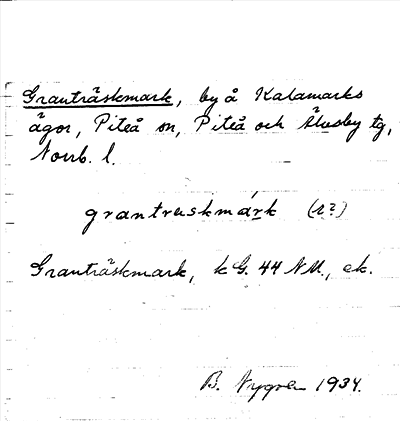 Granträskmark, by å Kalamarks
ägor, Piteå sn, Piteå och Älvsby tg,
Norrb. l.
grantruskmárk
Granträskmark, k G. 44 NM., ek.
B. Nygren 1934.